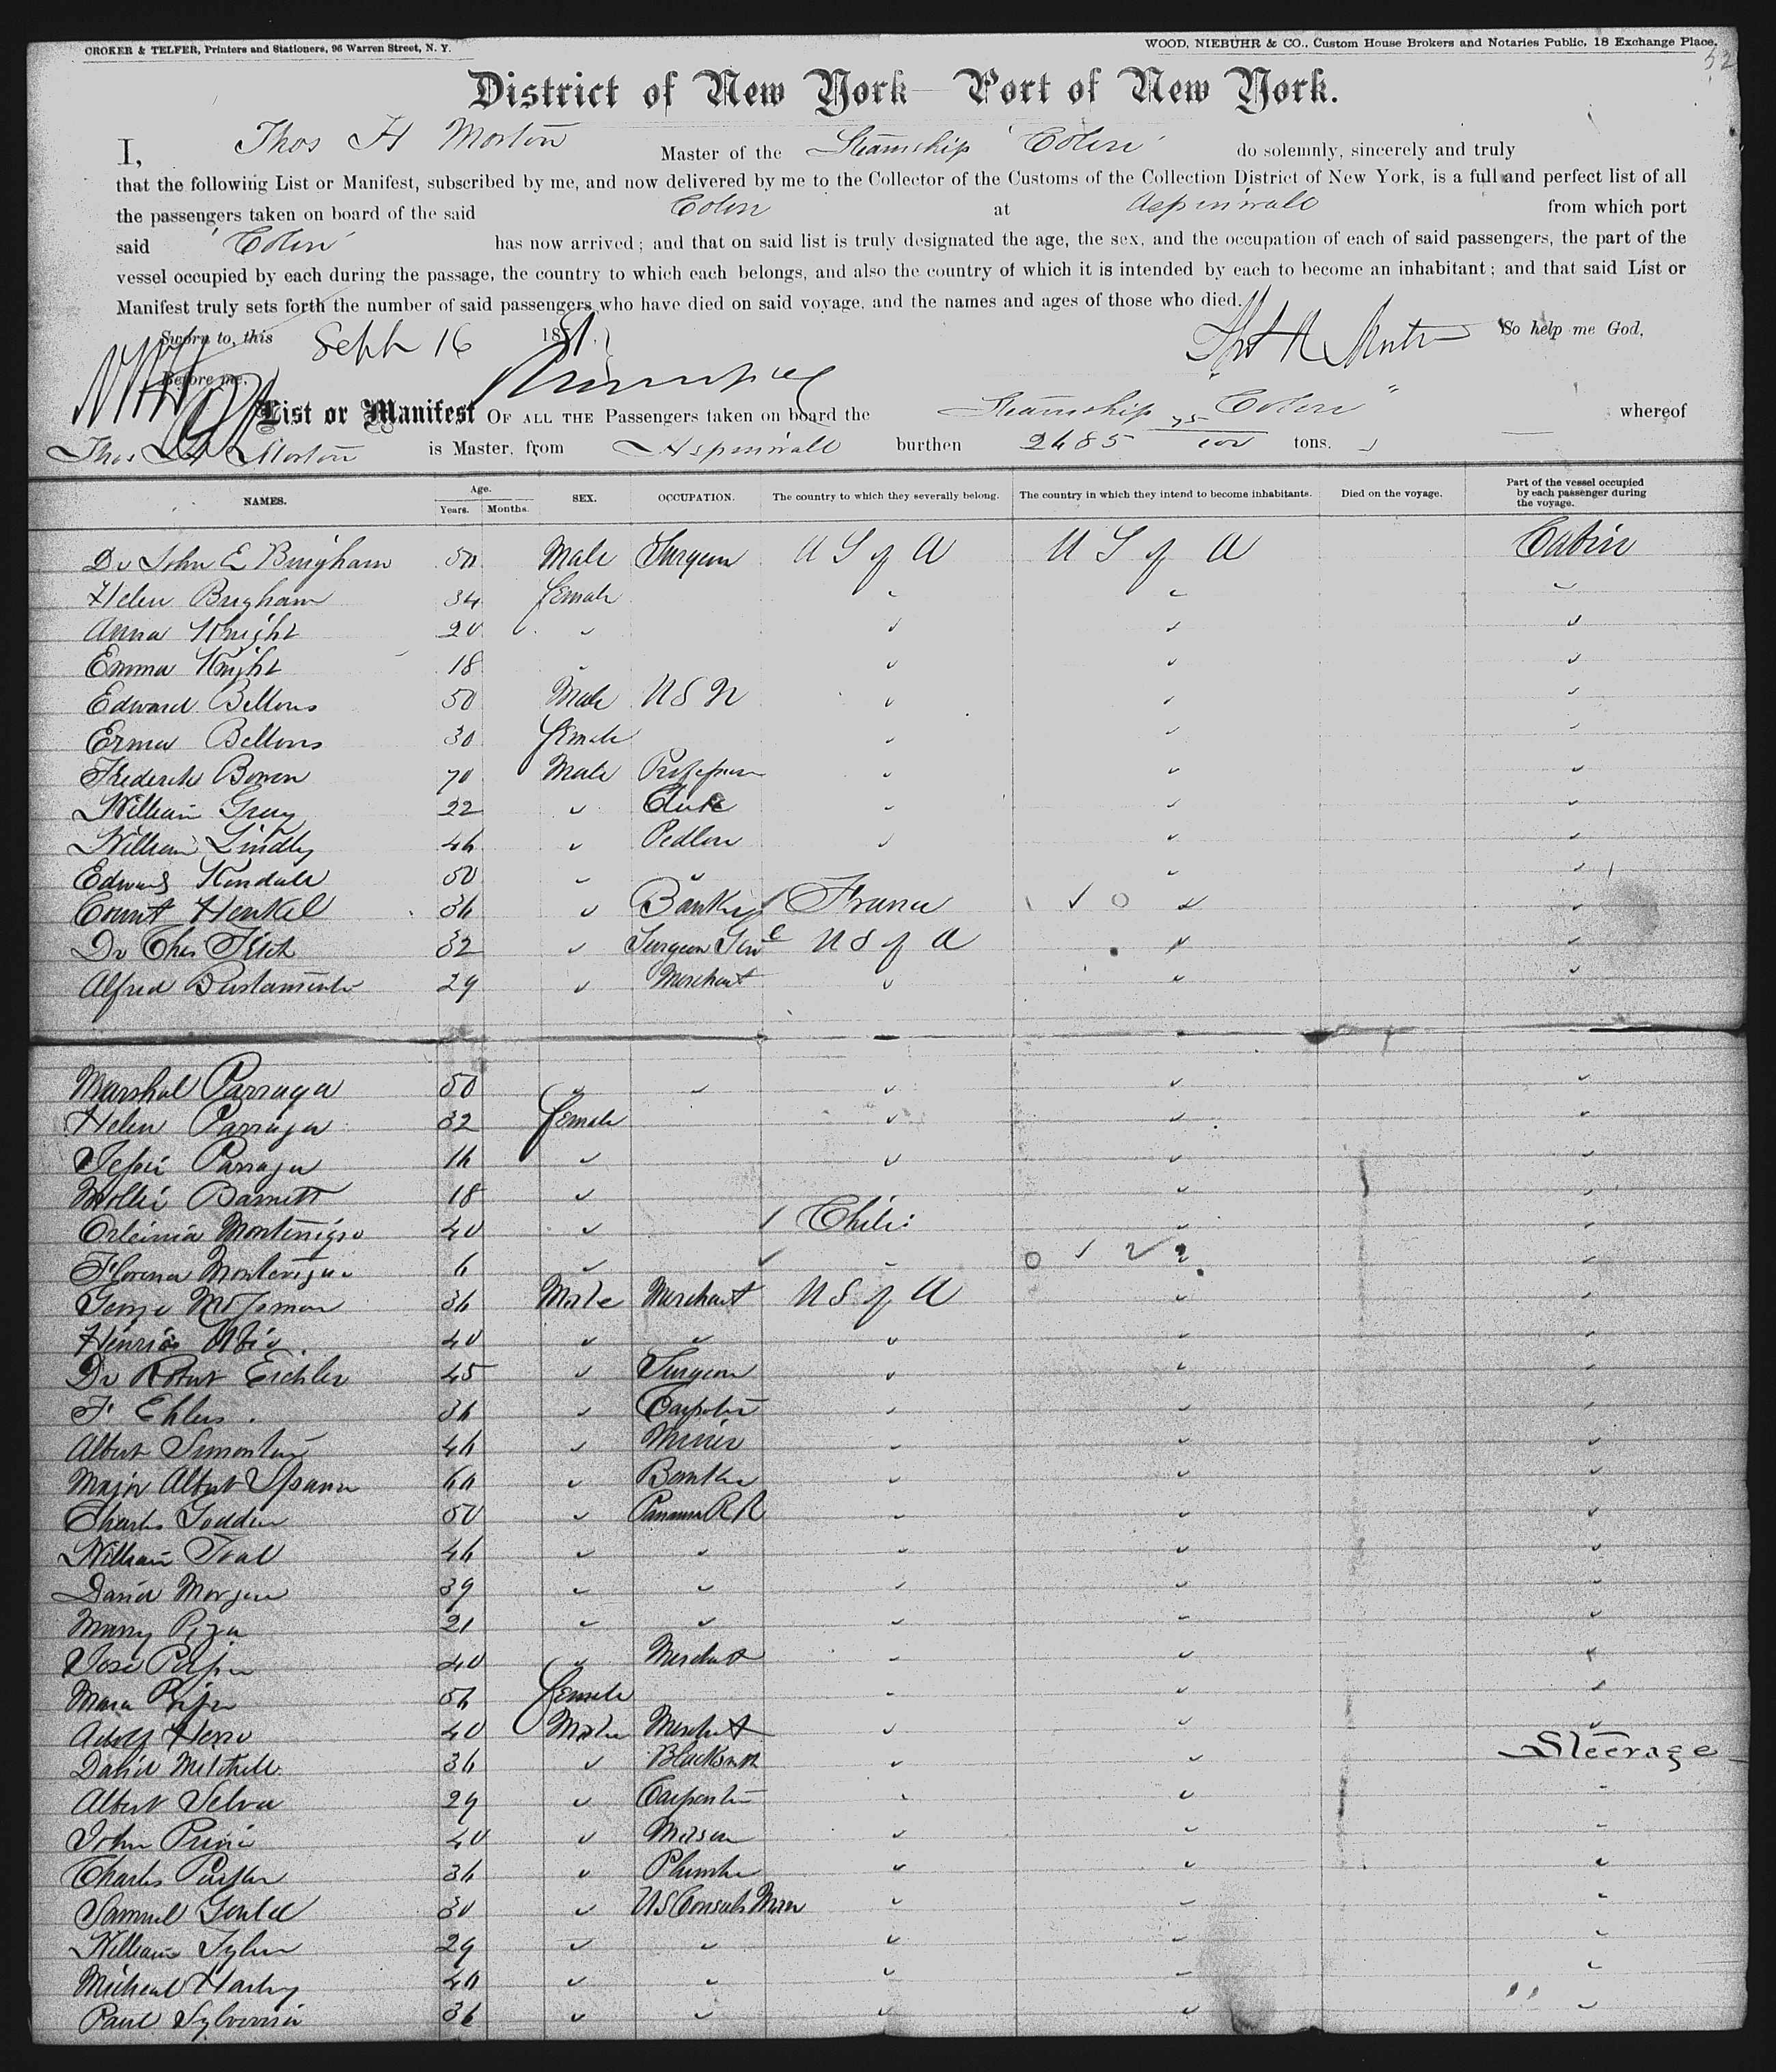 CROKER & TELFER, Printers and Stationers, 96 Warren Street, N. Y.
WOOD, NIEBUHR & CO., Custom House Brokers and Notaries Public, 18 Exchange Place.
52
District of New York—Port of New York.
I, Thos H Morton Master of the Steamship "Colon" do solemnly, sincerely and truly
that the following List or Manifest, subscribed by me, and now delivered by me to the Collector of the Customs of the Collection District of New York, is a full and perfect list of all
the passengers taken on board of the said Colon at Aspinwall from which port
said "Colon" has now arrived; and that on said list is truly designated the age, the sex, and the occupation of each of said passengers, the part of the
vessel occupied by each during the passage, the country to which each belongs, and also the country of which it is intended by each to become an inhabitant; and that said List or
Manifest truly sets forth the number of said passengers who have died on said voyage, and the names and ages of those who died.
Sworn to, this Sept 16 1881. So help me God,
Before me,
List or Manifest OF ALL THE Passengers taken on board the Steamship "Colon" whereof
Thos H Morton is Master, from Aspinwall burthen 2685 75/100 tons.
NAMES. Age. Years. Months. SEX. OCCUPATION. The country to which they severally belong. The country in which they intend to become inhabitants. Died on the voyage. Part of the vessel occupied by each passenger during the voyage.
Dr John E Bingham 50 Male Surgeon U S of A U S of A Cabin
Helen Bingham 34 female
Anna Knight 20
Emma Knight 18
Edward Bellows 50 Male U S N
Erma Bellows 30 female
Frederick Bowen 70 Male Professor
William Gray 22 Clerk
William Lindly 46 Pedlon
Edward Kendall 50
Count Henkel 36 Banker France
Dr Chas 32 Surgeon Genl U S of A
Alfred Bustamente 29 Merchant
Marshal Parraga 50
Helen Parraga 32 female
Jessie Parraga 16
Mollie Barnett 18
Montenigro 40 Chili
Florena Montenigro 6
George 36 Male Merchant U S of A
40
Dr Robert Eichler 45 Surgeon
F Ehlers 36 Carpenter
Albert Simonton 46 Miner
Major Albert 60 Banker
Charles Godden 50 Panama R R
William Toal 46
David Morgan 39
21
Jose 40 Merchant
56 female
Adolf 40 Male Merchant
David Mitchell 36 Blacksmith Steerage
Albert Selva 29 Carpenter
John 40 Mason
Charles 36 Plumber
Samuel 30 US Consuls Man
William Tyler 29
Micheal 40
Paul 36